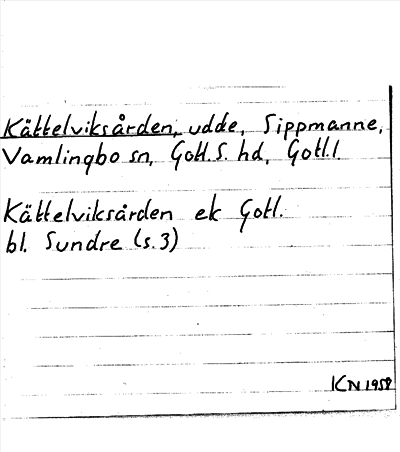 Kättelviksården, udde, Sippmanne,
Vamlingbo sn, Gotl. S. hd, Gotl.l.
Kättelviksården ek Gotl.
bl. Sundre (s.3)
KN 1958